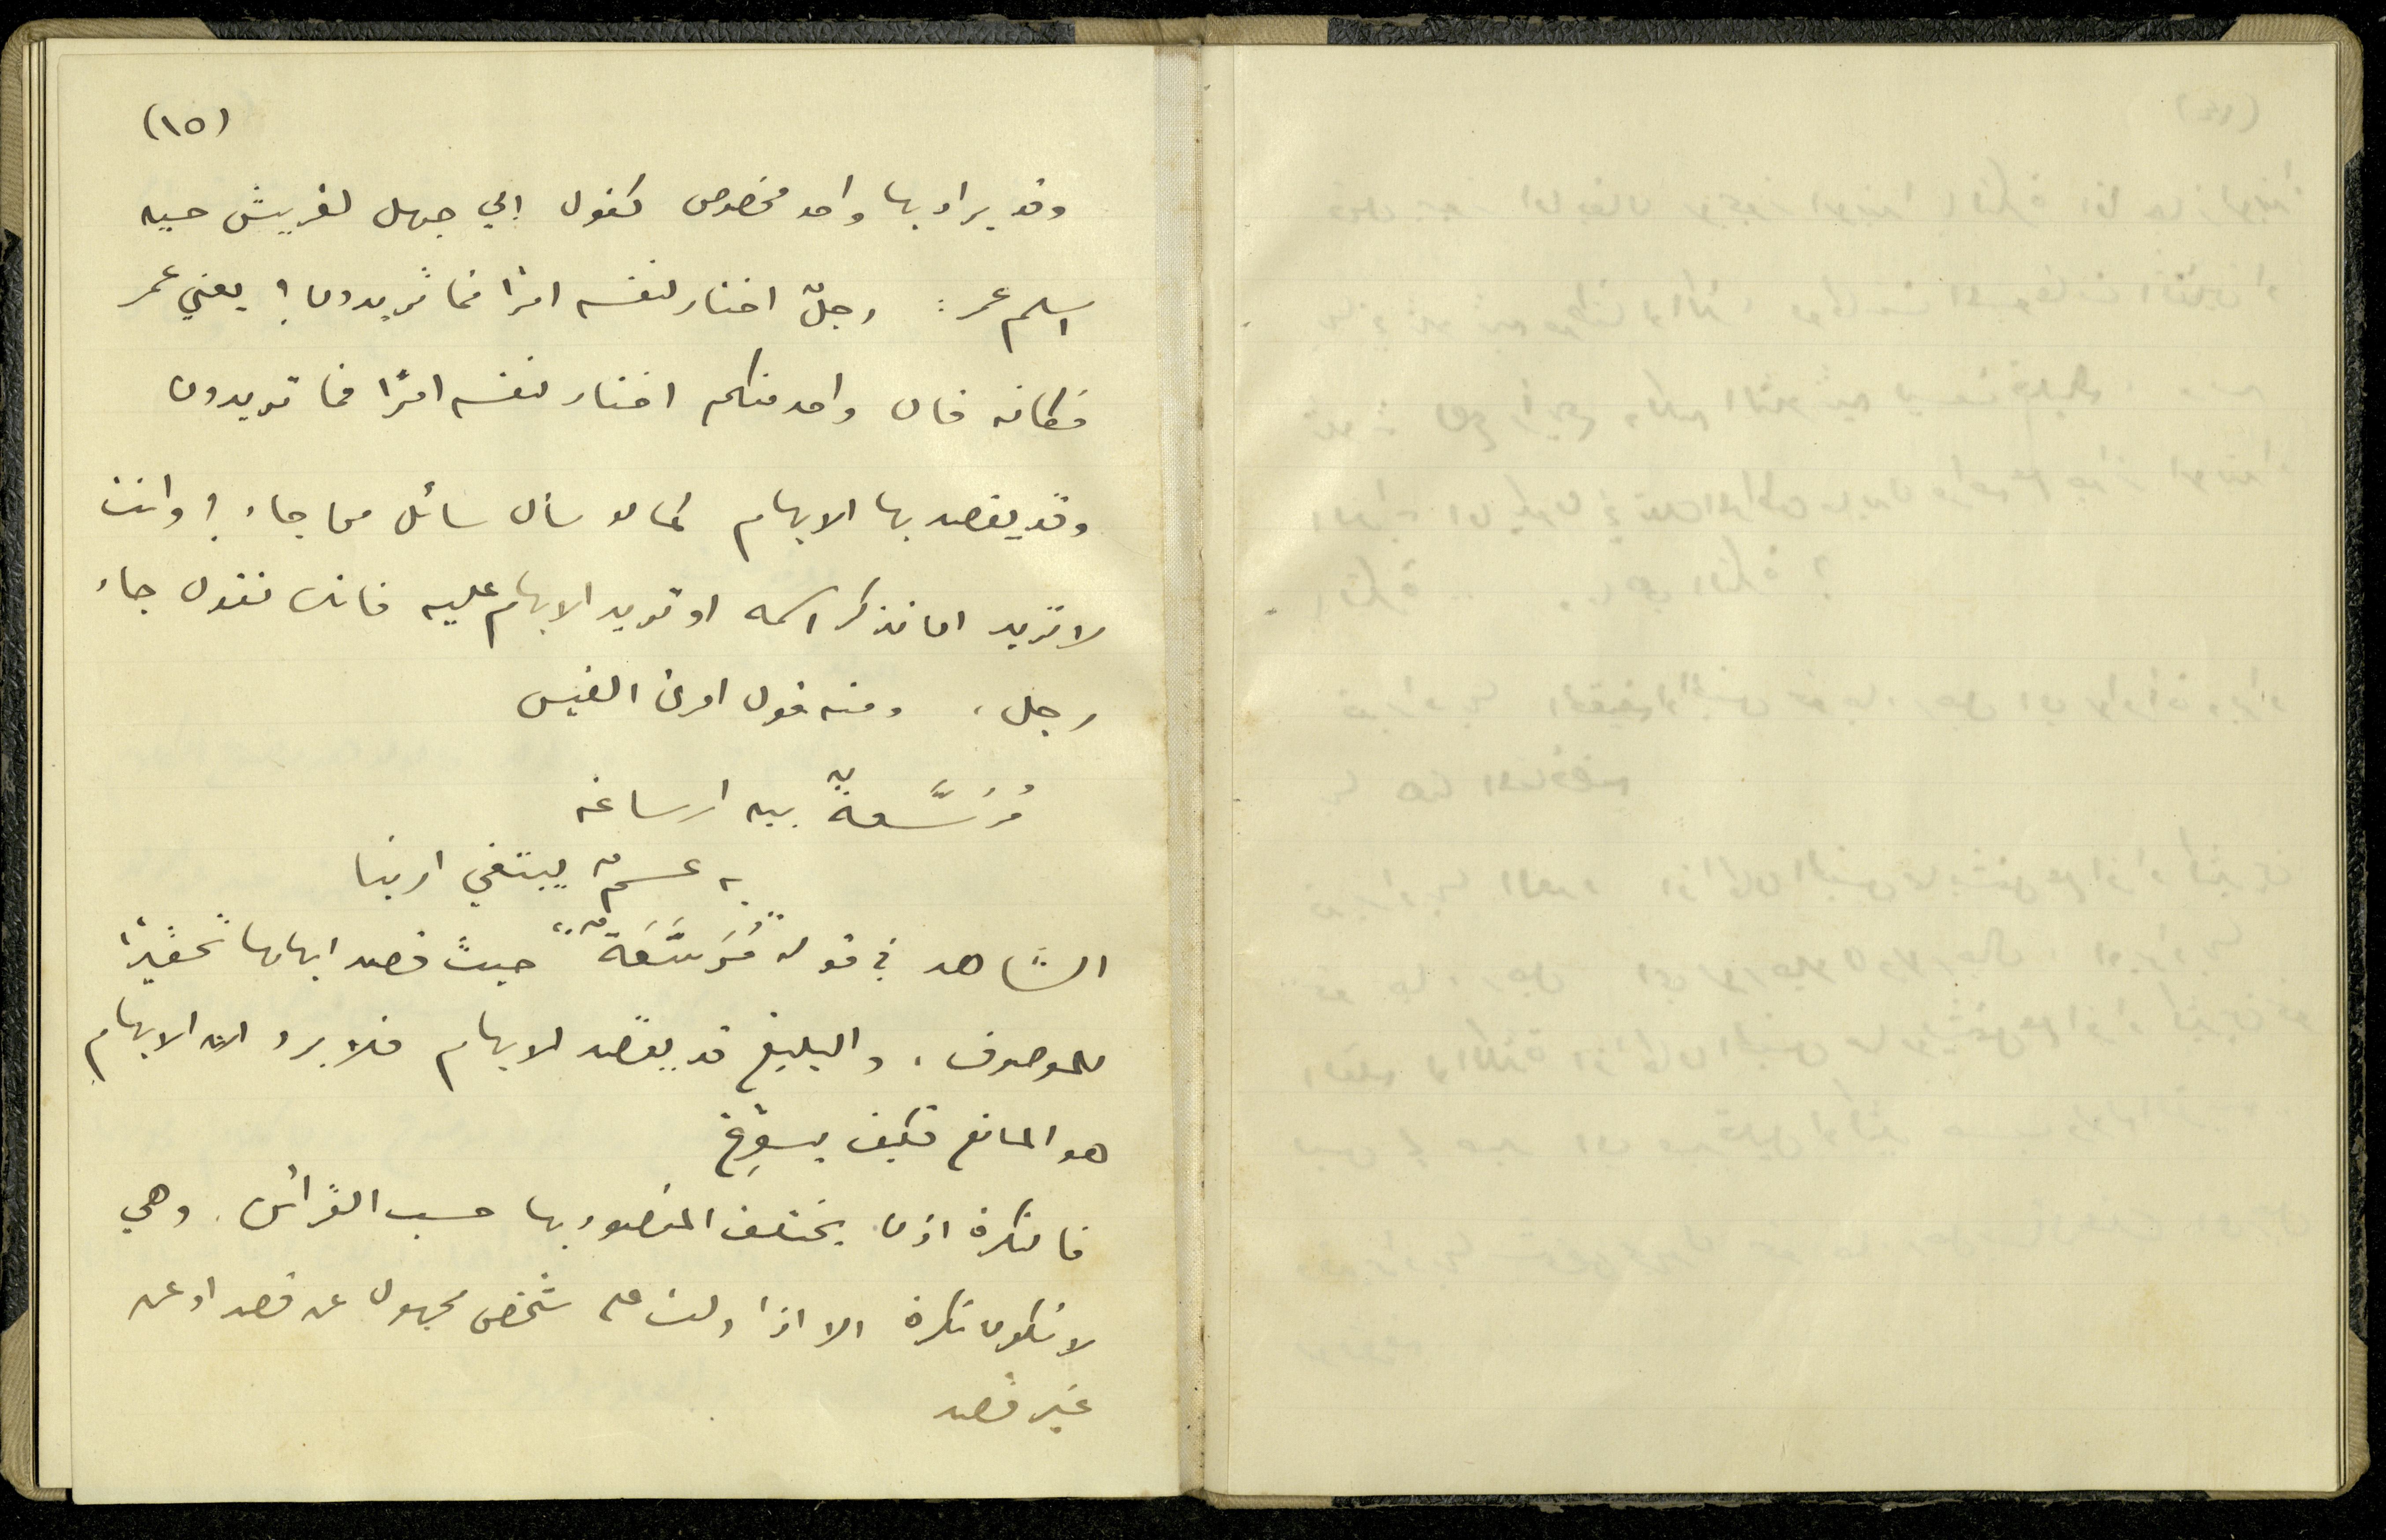 (١٥)
وقد يراد بها واحد مخصوص كقول ابي جهل لقريش حين
اسلم عمر: رجلٌ اختار لنفسه امرًا فما تريدون؟ يعني عمر
فكانه قال واحد منكم اختار لنفسه امرًا فما تريدون
وقد يقصد بها الابهام كما لو سأل سائل من جاء؟ وانت
لا تريد ان تذكر اسمه او تريد الابهام عليه فانك تقول جاء
رجل، ومنه قول امرئ القيس
مُرَسَّعةٌ بين ارساغه
به عسمٌ يبتغي ارنبا
الشاهد في قوله "مُرَسَّعَةٌ" حيث قصد ابهامها تحقيرًا
للموصوف، والبليغ قد يقصد الابهام فلا يرد ان الابهام
هو المانع فكيف يسوِّغ
فالنكرة اذن يختلف المقصود بها حسب القرائن. وهي
لا تكون نكرة الا اذا دلت على شخص مجهول عن قصد او عن
غير قصد